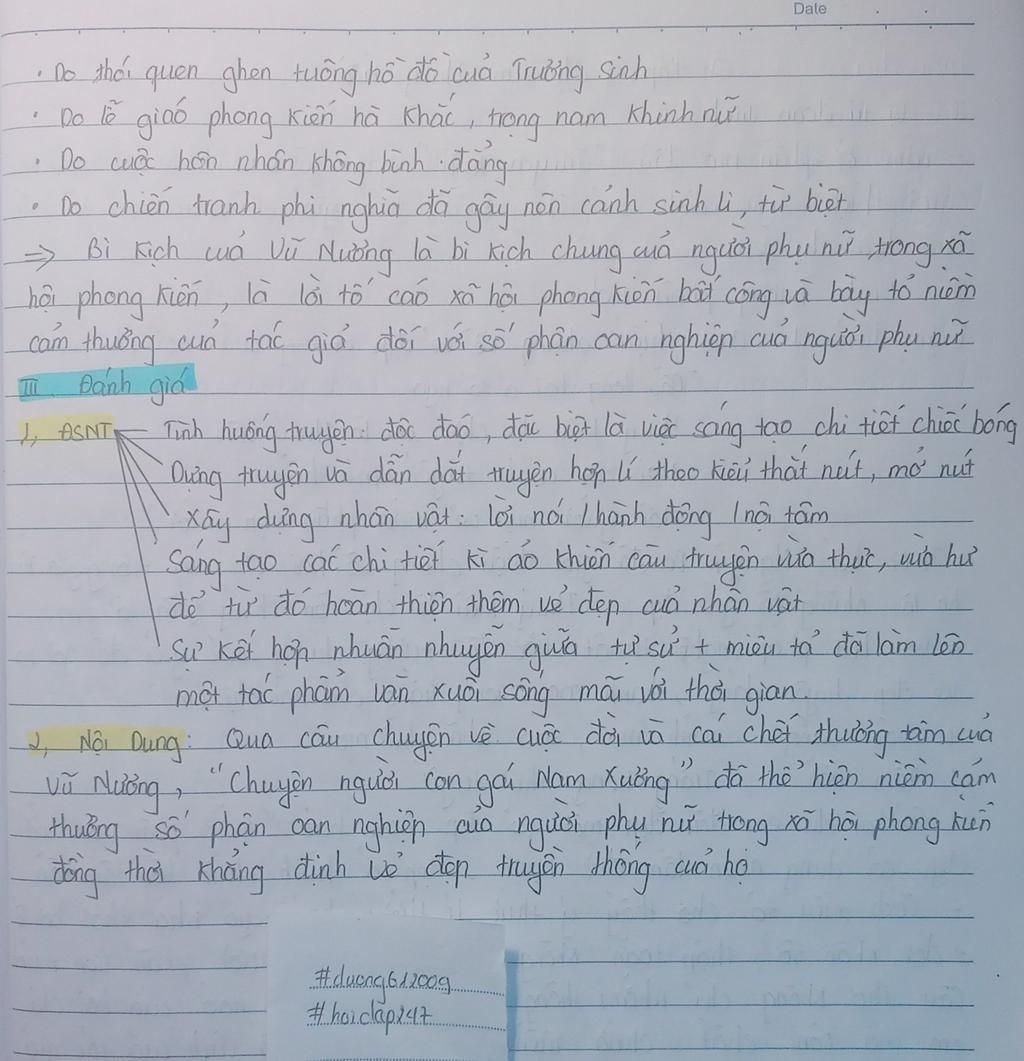 Date
• Do thói quen ghen tuông hồ đồ của Trương Sinh
• Do lễ giáo phong kiến hà khắc, trọng nam khinh nữ
• Do cuộc hôn nhân không bình đẳng
• Do chiến tranh phi nghĩa đã gây nên cảnh sinh li, từ biệt
=> Bi kịch của Vũ Nương là bi kịch chung của người phụ nữ trong xã
hội phong kiến, là lời tố cáo xã hội phong kiến bất công và bày tỏ niềm
cảm thương của tác giả đối với số phận oan nghiệp của người phụ nữ
III Đánh giá
1, ĐSNT — Tình huống truyện: độc đáo, đặc biệt là việc sáng tạo chi tiết chiếc bóng
Dựng truyện và dẫn dắt truyện hợp lí theo kiểu thắt nút, mở nút
Xây dựng nhân vật: lời nói / hành động / nội tâm
Sáng tạo các chi tiết kì ảo khiến câu truyện vừa thực, vừa hư
để từ đó hoàn thiện thêm vẻ đẹp của nhân vật
Sự kết hợp nhuần nhuyễn giữa tự sử + miêu tả đã làm lên
một tác phẩm văn xuôi sống mãi với thời gian.
2, Nội Dung: Qua câu chuyện về cuộc đời và cái chết thương tâm của
Vũ Nương, "Chuyện người con gái Nam Xương" đã thể hiện niềm cảm
thương số phận oan nghiệp của người phụ nữ trong xã hội phong kiến
đồng thời khẳng định vẻ đẹp truyền thống của họ
#duong612009
#hoidap247